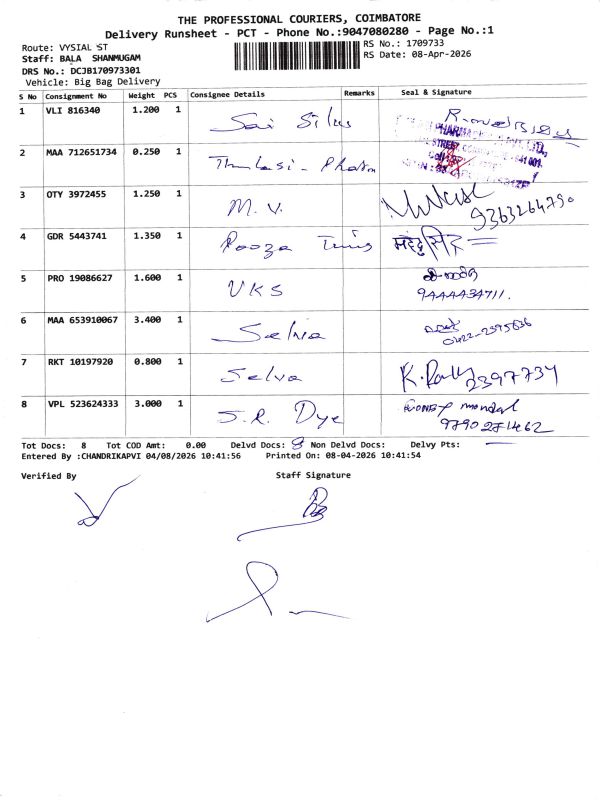 THE PROFESSIONAL COURIERS, COIMBATORE
Delivery Runsheet - PCT - Phone No.:9047080280 - Page No.:1
Route: VYSIAL ST
RS No.: 1709733
Staff: BALA SHANMUGAM
RS Date: 08-Apr-2026
DRS No.: DCJB170973301
Vehicle: Big Bag Delivery
S No Consignment No Weight PCS Consignee Details Remarks Seal & Signature
1 VLI 816340 1.200 1 Sai Silks
2 MAA 712651734 0.250 1 Thulasi - Pharm
3 OTY 3972455 1.250 1 M. V. 9363264790
4 GDR 5443741 1.350 1 Pooza
5 PRO 19086627 1.600 1 VKS 9444434711.
6 MAA 653910067 3.400 1 Selva 0422-2395636
7 RKT 10197920 0.800 1 Selva 2397734
8 VPL 523624333 3.000 1 S.R. Dye
Tot Docs: 8 Tot COD Amt: 0.00 Delvd Docs: 8 Non Delvd Docs: Delvy Pts:
Entered By :CHANDRIKAPVI 04/08/2026 10:41:56 Printed On: 08-04-2026 10:41:54
Verified By Staff Signature